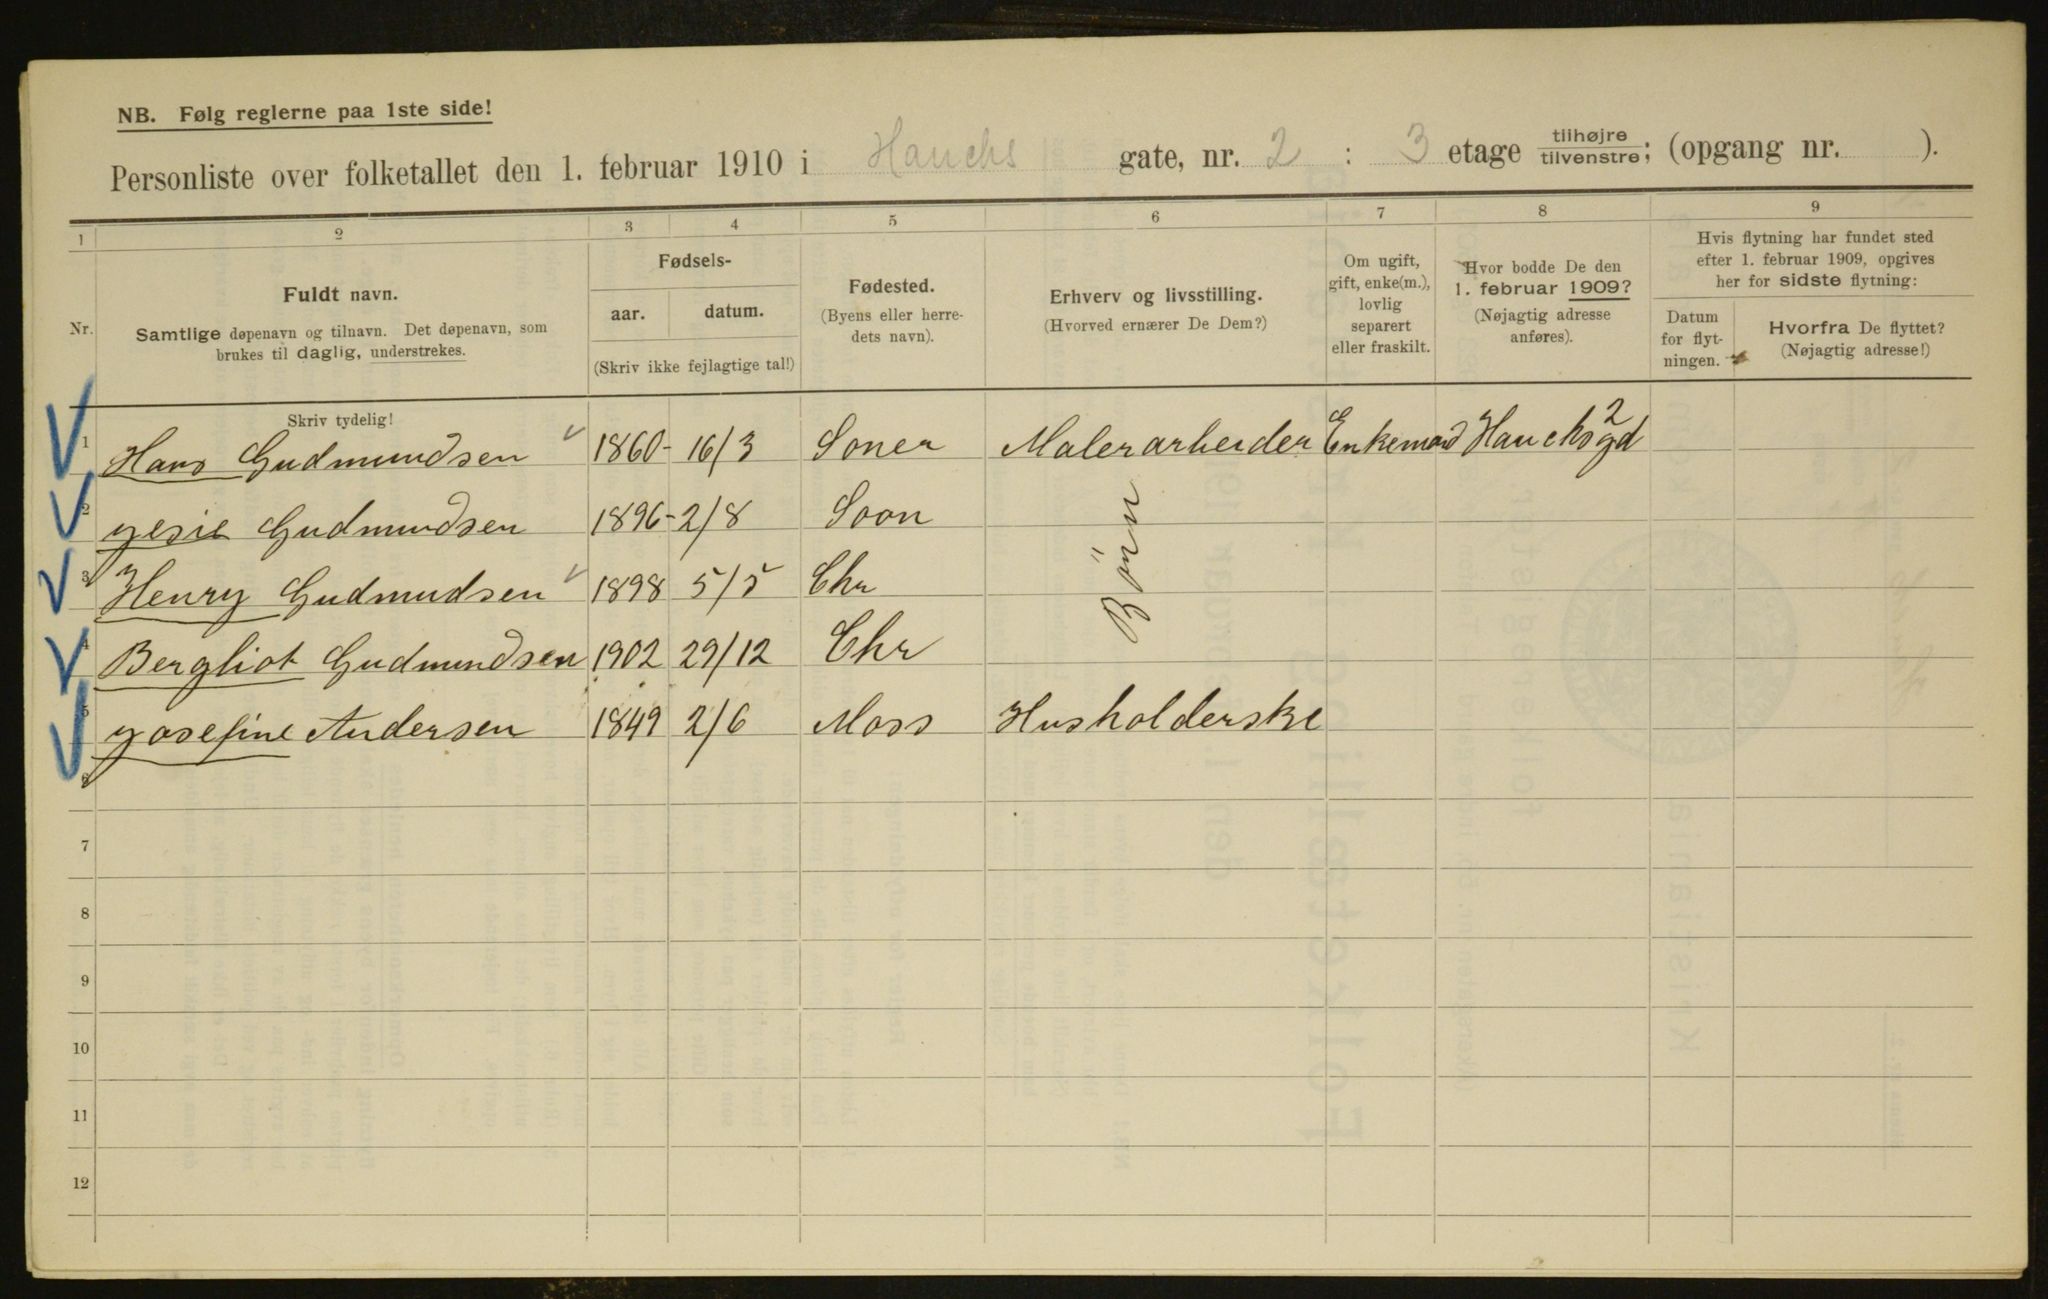 NB. Følg reglerne paa 1ste side!
Personliste over folketallet den 1. februar 1910 i Hauchs gate, nr. 2 : 3 etage tilhøjre/tilvenstre; (opgang nr. ).
1 2 3 4 5 6 7 8 9
Nr.
Fuldt navn.
Samtlige døpenavn og tilnavn. Det døpenavn, som
brukes til daglig, understrekes.
Fødsels-
aar. datum.
(Skriv ikke fejlagtige tal!)
Fødested.
(Byens eller herre-
dets navn).
Erhverv og livsstilling.
(Hvorved ernærer De Dem?)
Om ugift,
gift, enke(m.),
lovlig
separert
eller fraskilt.
Hvor bodde De den
1. februar 1909?
(Nøjagtig adresse
anføres).
Hvis flytning har fundet sted
efter 1. februar 1909, opgives
her for sidste flytning:
Datum
for flyt-
ningen.
Hvorfra De flyttet?
(Nøjagtig adresse!)
Skriv tydelig!
1 Hans Gudmundsen 1860- 16/3 Soner Malerarbeider Enkemand Hauchsgd 2
2 yesie Gudmundsen 1896- 2/8 Soon
3 Henry Gudmudsen 1898 5/5 Chr
Börn
4 Bergliot Gudmundsen 1902 29/12 Chr
5 yosefine Andersen 1849 2/6 Moss Husholderske
6
7
8
9
10
11
12